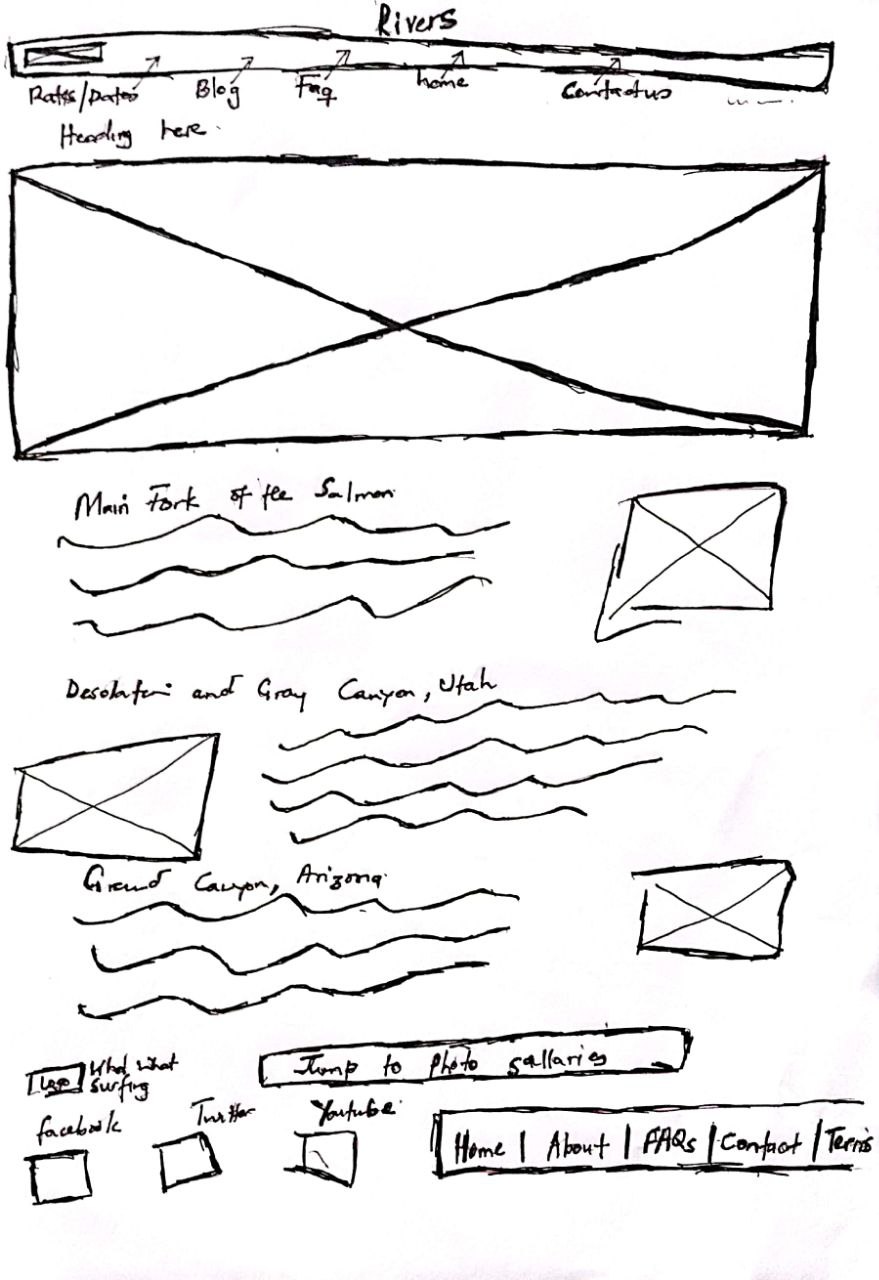 Rivers
Rates/Dates Blog Faq home Contact us
Heading here.
Main Fork of the Salmon
Desolation and Gray Canyon, Utah
Grand Canyon, Arizona
Jump to photo gallaries
Logo
surfing
facebook Twitter Youtube
Home | About | FAQs | Contact | Terms